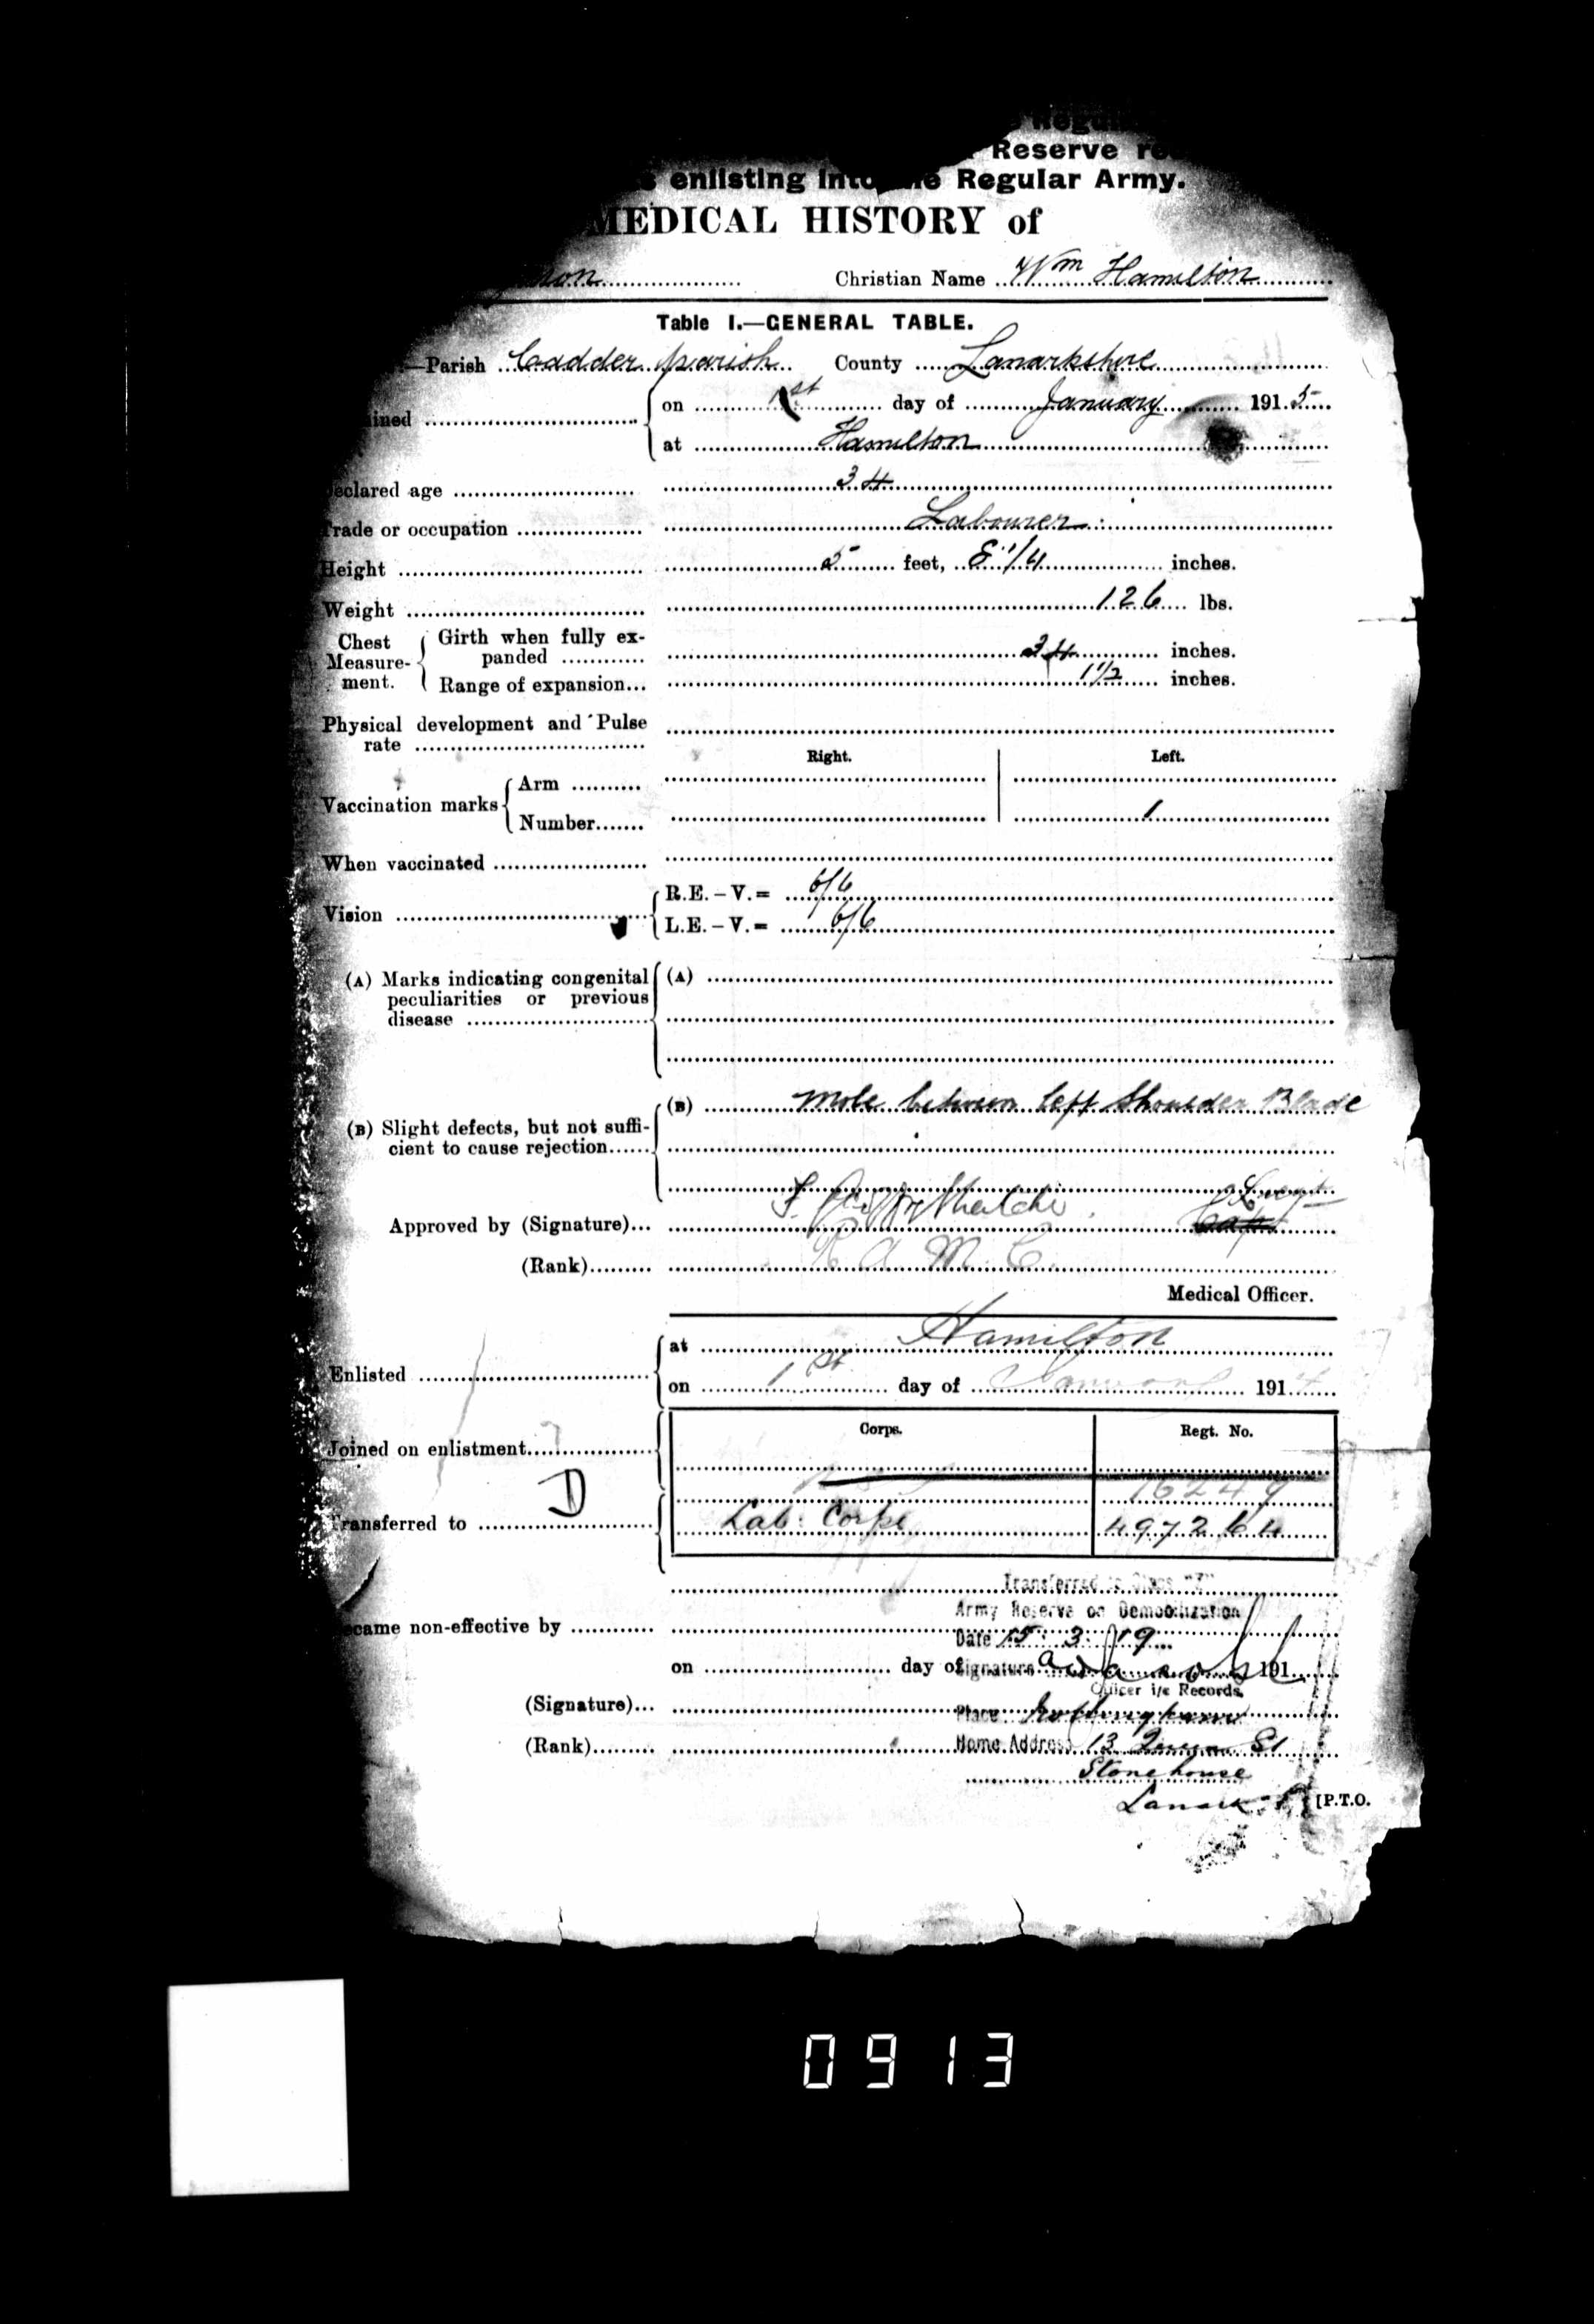 Reserve
enlisting into the Regular Army.
MEDICAL HISTORY of
Christian Name Wm Hamilton
Table I.—GENERAL TABLE.
—Parish Cadder parish County Lanarkshire
on 1st day of January 1915
at Hamilton
Declared age 34
Trade or occupation Labourer
Height 5 feet, 8 1/4 inches.
Weight 126 lbs.
Chest Measure- ment. Girth when fully ex-
panded 34 inches.
Range of expansion... 1 1/2 inches.
Physical development and Pulse
rate
Right. Left.
Vaccination marks Arm
Number 1
When vaccinated
Vision R.E.-V.= 6/6
L.E.-V.= 6/6
(A) Marks indicating congenital (A)
peculiarities or previous
disease
(B) mole between left Shoulder Blade
(B) Slight defects, but not suffi-
cient to cause rejection
Approved by (Signature)...
(Rank) R.A.M.C.
Medical Officer.
Enlisted at Hamilton
on 1st day of January 191
Corps. Regt. No.
Joined on enlistment
16249
D
Transferred to Lab: Corps 497264
Transferred to Class "Z"
Army Reserve on Demobilization
Became non-effective by
Date 15.3.19
on day of Signature 191
Officer i/c Records.
(Signature)... Place Nottingham
(Rank) Home Address 13 Queen St
Stonehouse
Lanark
[P.T.O.
0913